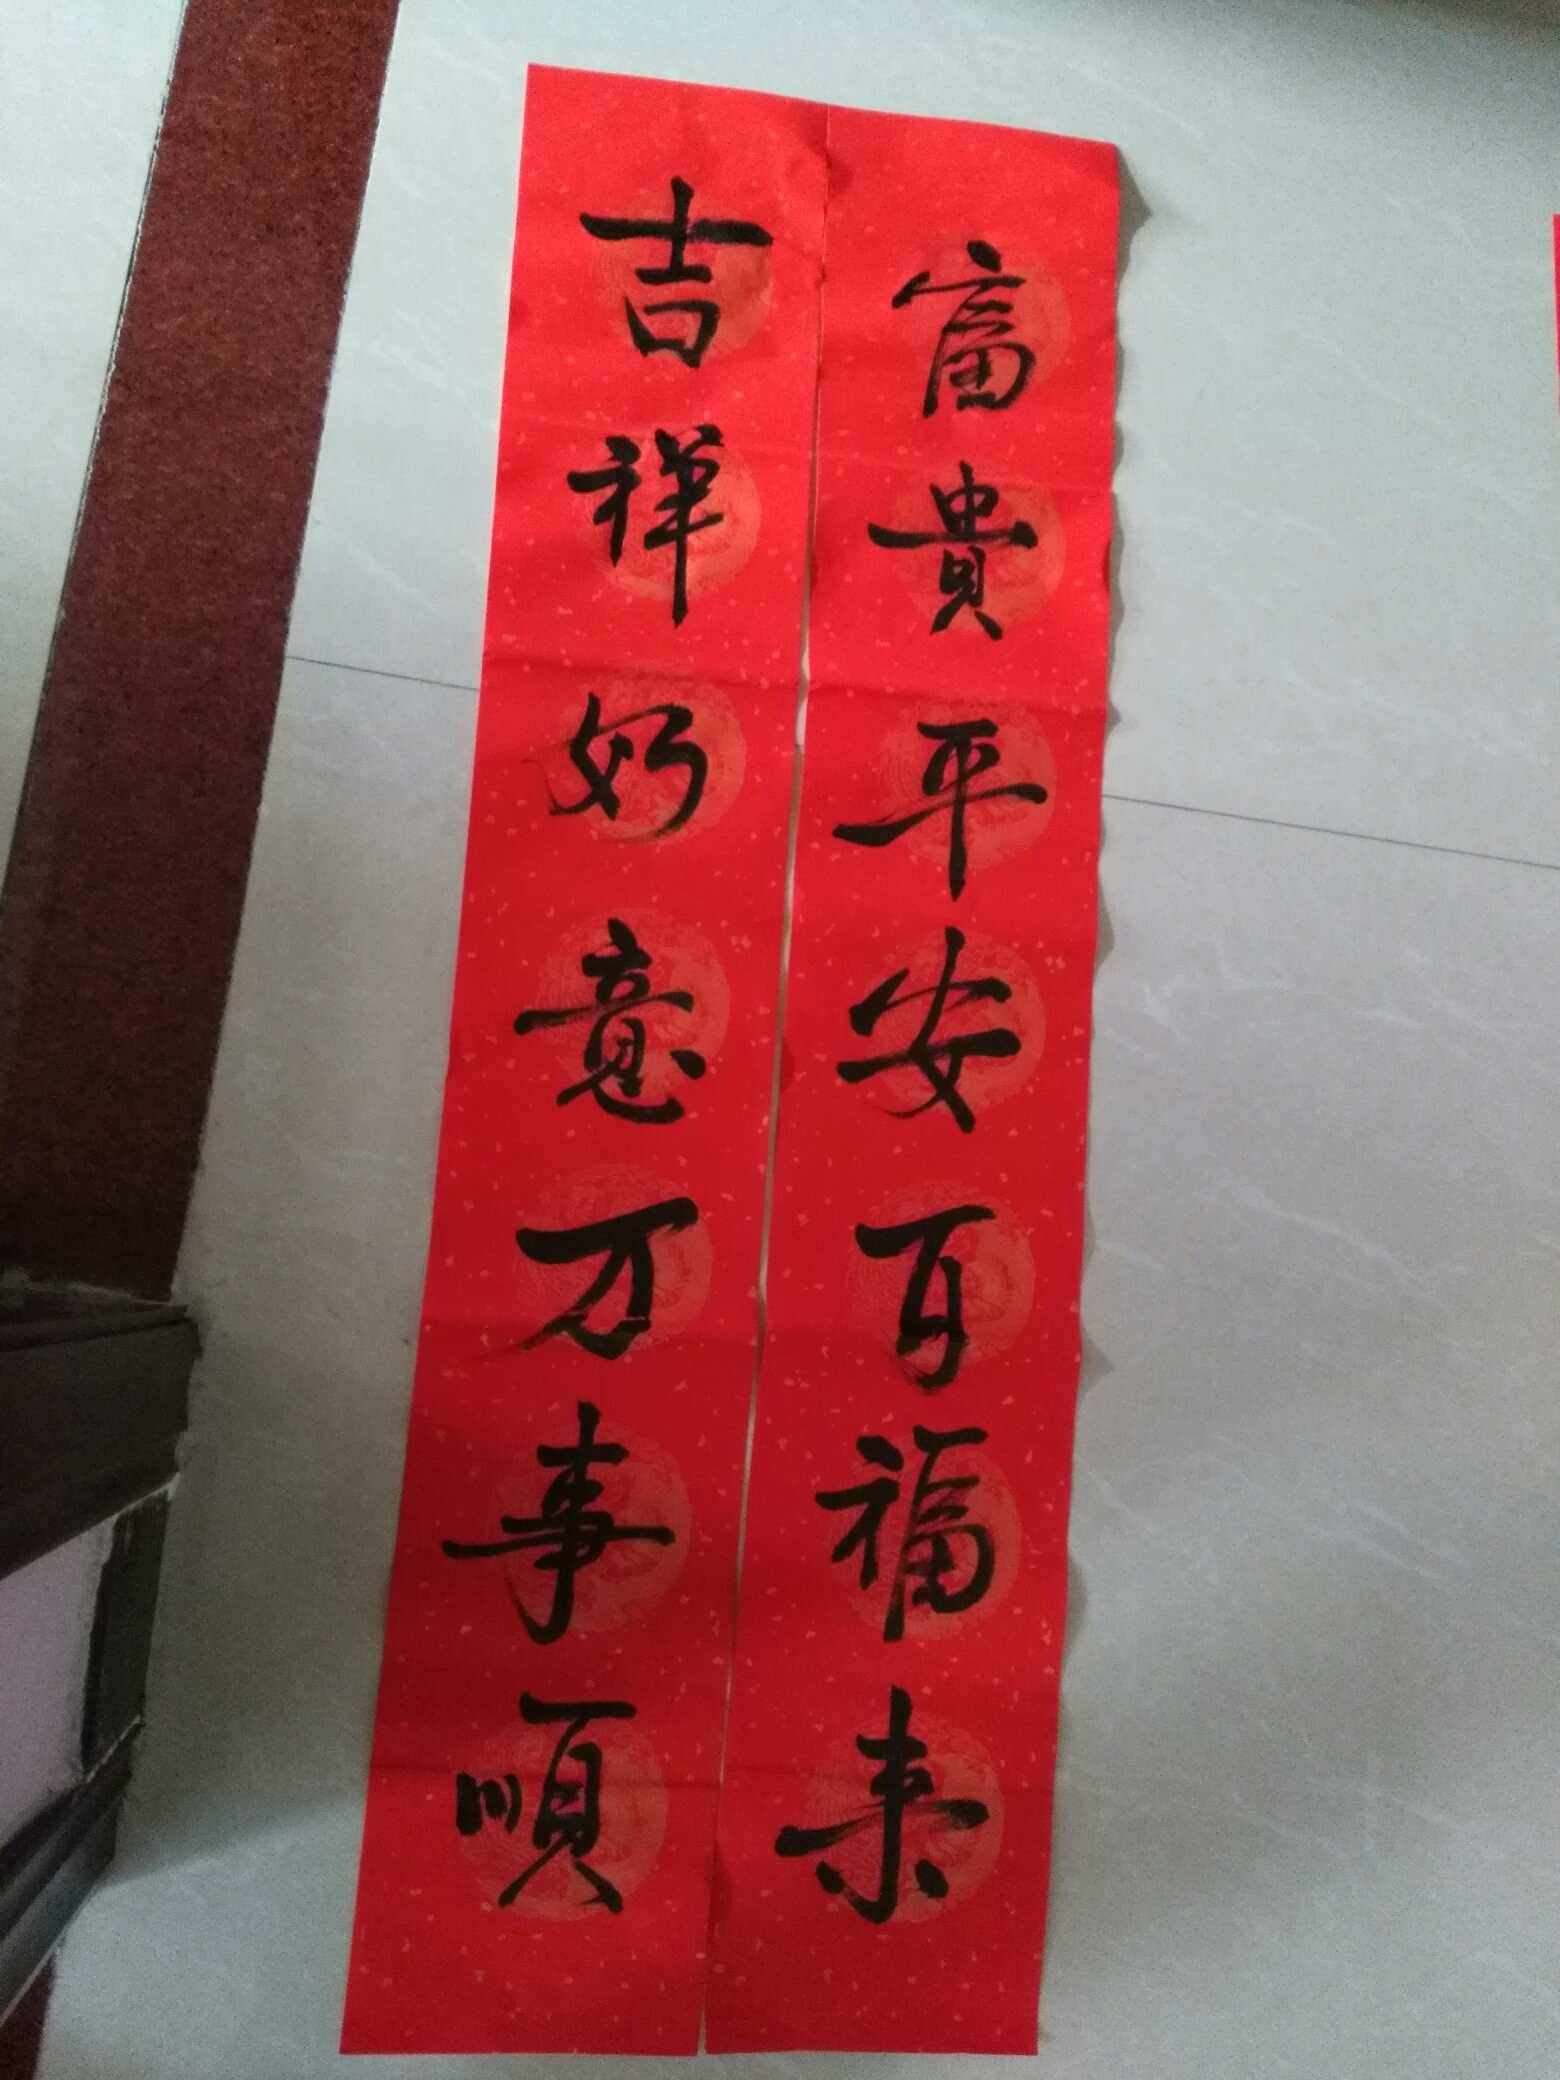 富貴平安百福来
吉祥如意万事順